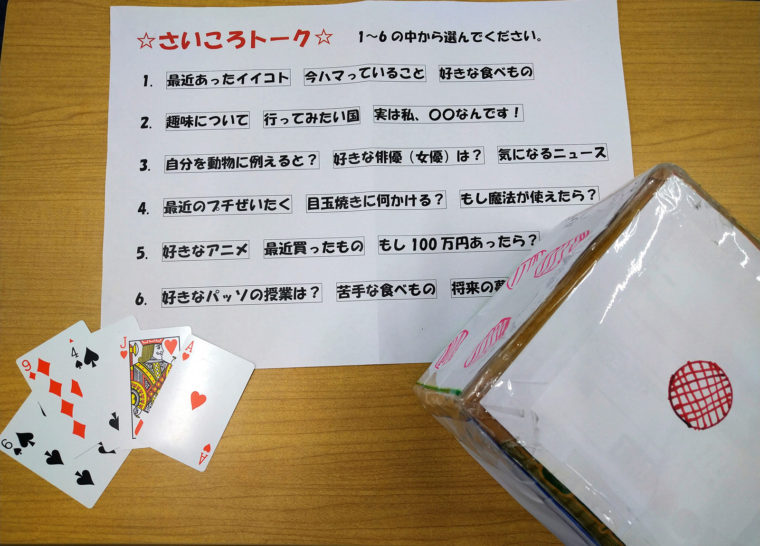 ☆さいころトーク☆ 1～6の中から選んでください。
1. 最近あったイイコト 今ハマっていること 好きな食べもの
2. 趣味について 行ってみたい国 実は私、〇〇なんです！
3. 自分を動物に例えると？ 好きな俳優（女優）は？ 気になるニュース
4. 最近のプチぜいたく 目玉焼きに何かける？ もし魔法が使えたら？
5. 好きなアニメ 最近買ったもの もし100万円あったら？
6. 好きなパッソの授業は？ 苦手な食べもの 将来の
9
4
J
A
6
A